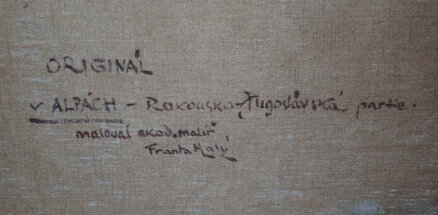 ORIGINÁL
v ALPÁCH - Rakousko-Jugoslávská partie.
maloval akad. malíř
Franta Malý